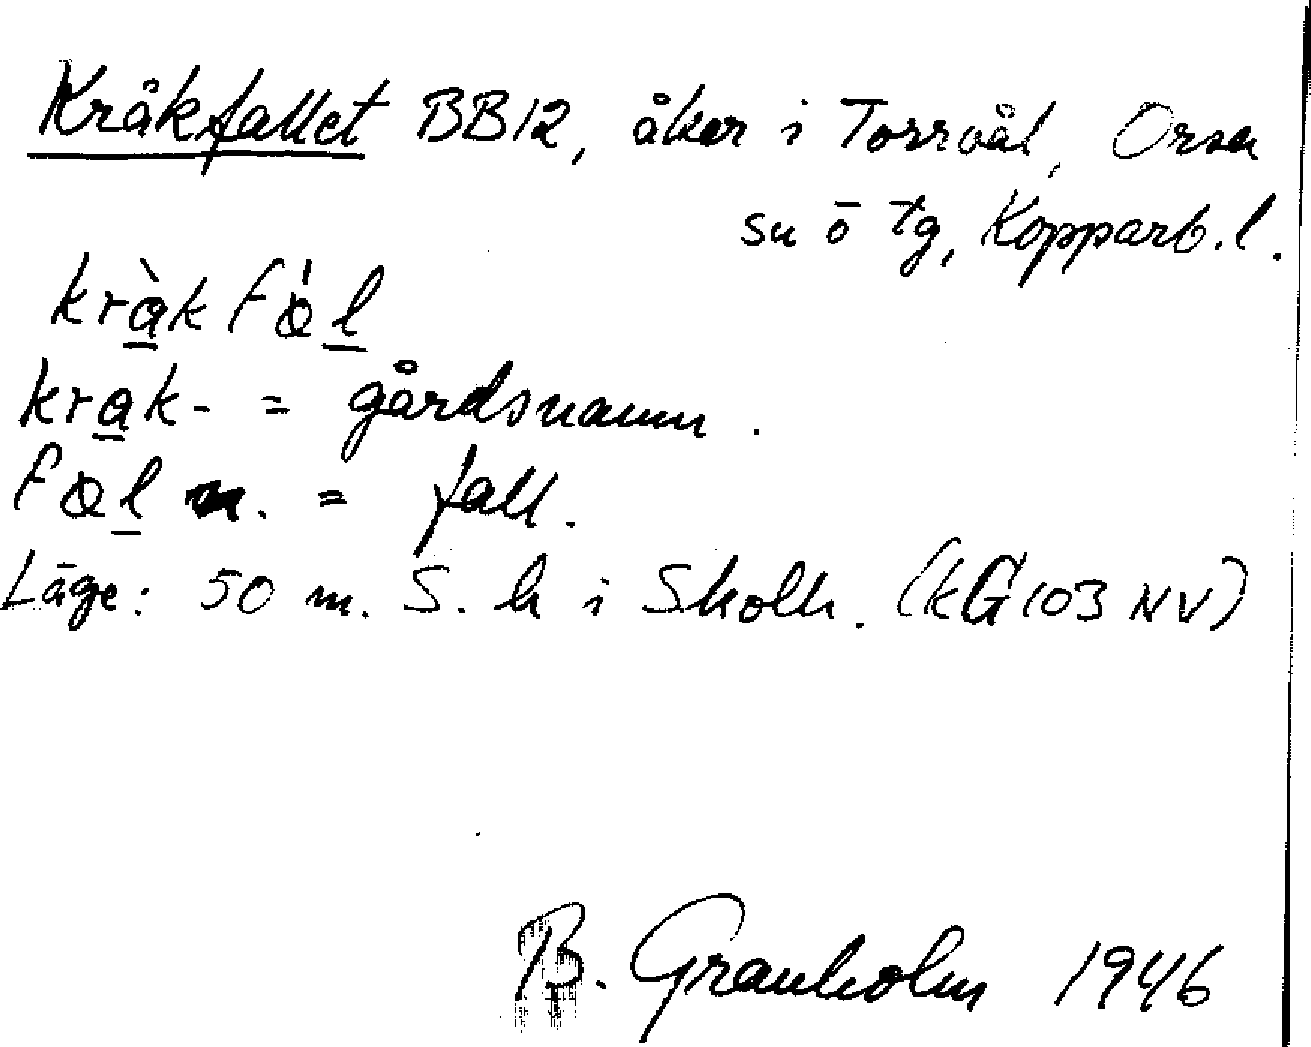 Kråkfallet BB12, åker i Torrvål, Orsa
sn ō tg, Kopparb. l.
kràkfál
krak- = gårdsnamn.
fal n. = fall.
Läge: 50 m. S. k i Skolh. (kG103 NV)
B. Granholm 1946